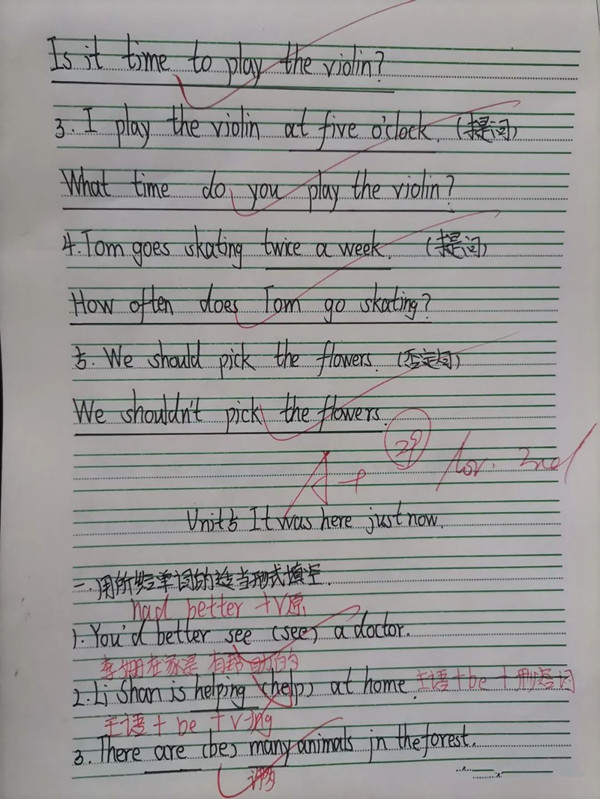 Is it time to play the violin?
3. I play the violin at five o'clock. (提问)
What time do you play the violin?
4. Tom goes skating twice a week. (提问)
How often does Tom go skating?
5. We should pick the flowers. (否定句)
We shouldn't pick the flowers.
A+
Unit 5 It was here just now.
一.用所给单词的适当形式填空.
had better +V原
1. You'd better see (see) a doctor.
李姗在家是有帮助的
2. Li Shan is helping (help) at home. 主语+be+形容词
主语+be+V-ing
3. There are (be) many animals in the forest.
许多